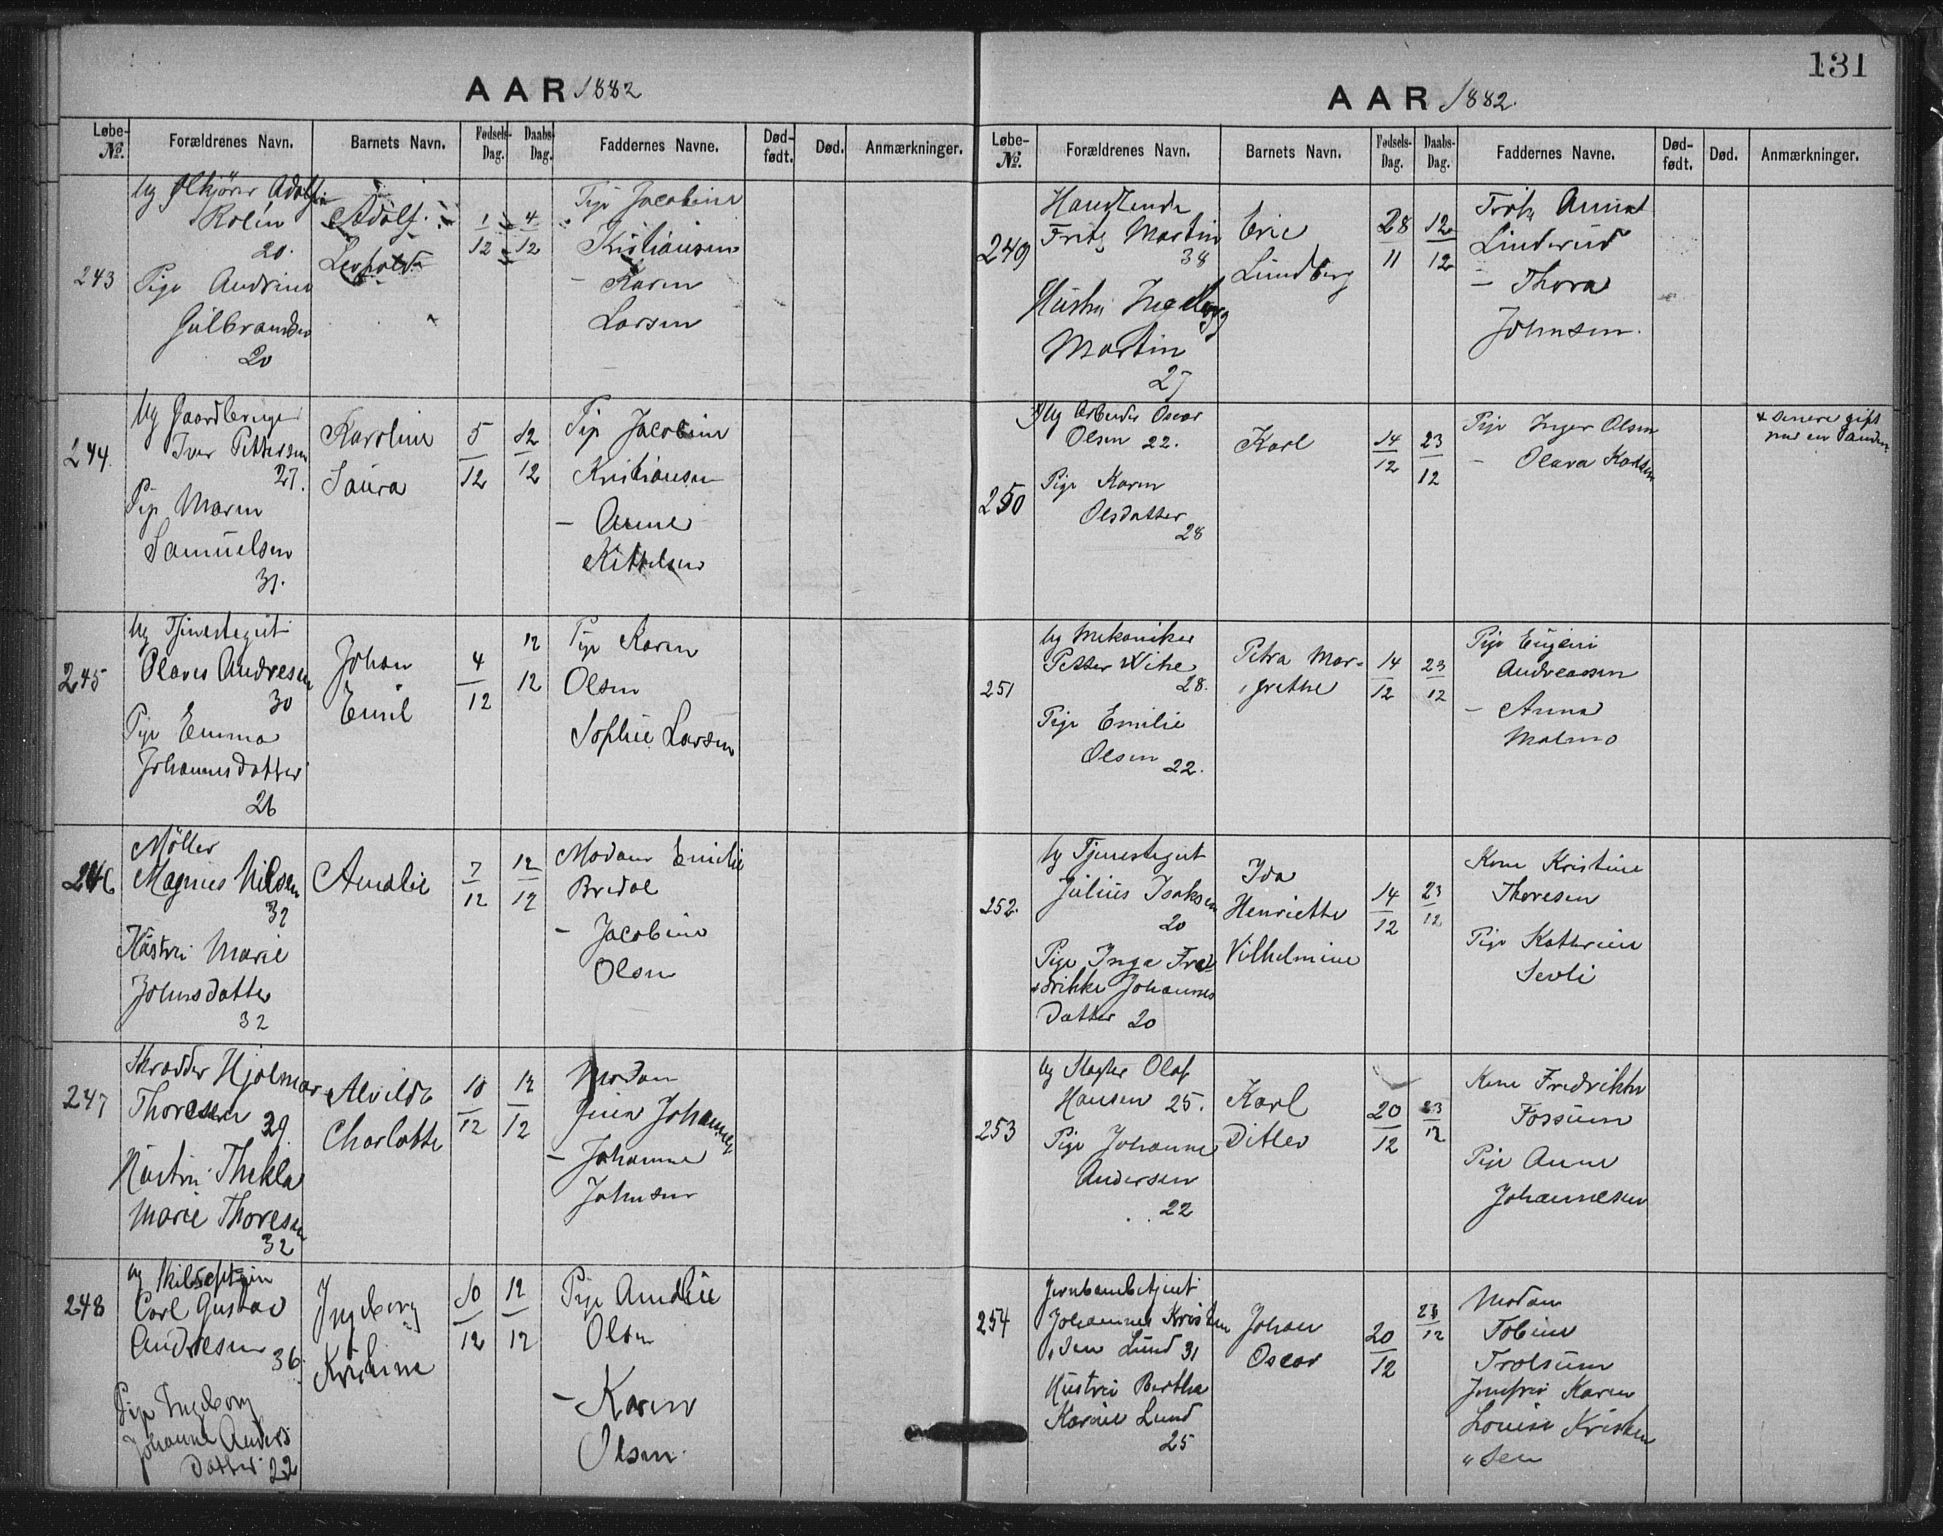 131
AAR 1882
Løbe-№. Forældrenes Navn. Barnets Navn. Fødsels-Dag. Daabs-Dag. Faddernes Navne. Død-født. Død. Anmærkninger.
243
Ug Adolf
Rolén
20.
Pige Andrine
Gulbrandsen
20
Adolf
Leopold
1/12
4/12
Pige Jacobine
Kristiansen
– Karen
Larsen
244.
Ug
Iver Pettersen
27.
Pige Maren
Samuelsen
31.
Karoline
Laura
5/12
12/12
Pige Jacobine
Kristiansen
– Anne
Kittelsen
245
Ug Tjenestegut
Olaves Andresen
30
Pige Emma
Johannesdatter
26
Johan
Emil
4/12
12/12
Pige Karen
Olsen
Sophie Larsen
246
Møller
Magnus Nilsen
32
Hustru Marie
Johnsdatter
32
Amalie
7/12
12/12
Madam Emilie
Bredal
– Jacobine
Olsen
247
Skrædder Hjalmar
Thoresen 29.
Hustru Thekla
Marie Thoresen
32
Alvilde
Charlotte
10/12
12/12
Madam
Johannesen
– Johanne
Johnsen
248
Ug
Carl Gustav
Andresen
36.
Pige Ingeborg
Johanne Anders
Datter 22
Ingeborg
Kristine
10/12
12/12
Pige Amalie
Olsen
– Karen
Olsen.
AAR 1882.
Løbe-№. Forældrenes Navn. Barnets Navn. Fødsels-Dag. Daabs-Dag. Faddernes Navne. Død-født. Død. Anmærkninger.
249
Handlende
Fritz Martin
38
Hustru Ingeborg
Martin
27
Eric
Lundberg
28/11
12/12
Frøk Anna
Linderud
– Thora
Johnsen.
250
Ug Arbeider Oscar
Olsen 22.
Pige Karen
Olsdatter
28
Karl
14/12
23/12
Pige Inger Olsen
– Olava Karlsen
x senere gift
med en anden
251
Ug Mekaniker
Petter Wike
28.
Pige Emilie
Olsen 22.
Petra Mar-
grethe
14/12
23/12
Pige Eugenie
Andreassen
– Anna
Malmo
252.
Ug Tjenestegut
Julius Isaksen
20
Pige Inga Fre-
drikke Johannes
Datter 20
Ida
Henriette
Vilhelmine
14/12
23/12
Kone Kristine
Thoresen
Pige Kathrine
Sevli
253
Ug Slagter Olaf
Hansen 25.
Pige Johanne
Andersen
22
Karl
Ditlev
20/12
23/12
Kone Fredrikke
Fossum
Pige Anne
Johannesen
254
Jernbanebetjent
Johannes Kristen
"sen Lund 31
Hustru Bertha
Karine Lund
25
Johan
Oscar
20/12
26/12
Madam
Tobine
Trolsum
Jomfru Karen
Louise Kristen
"sen